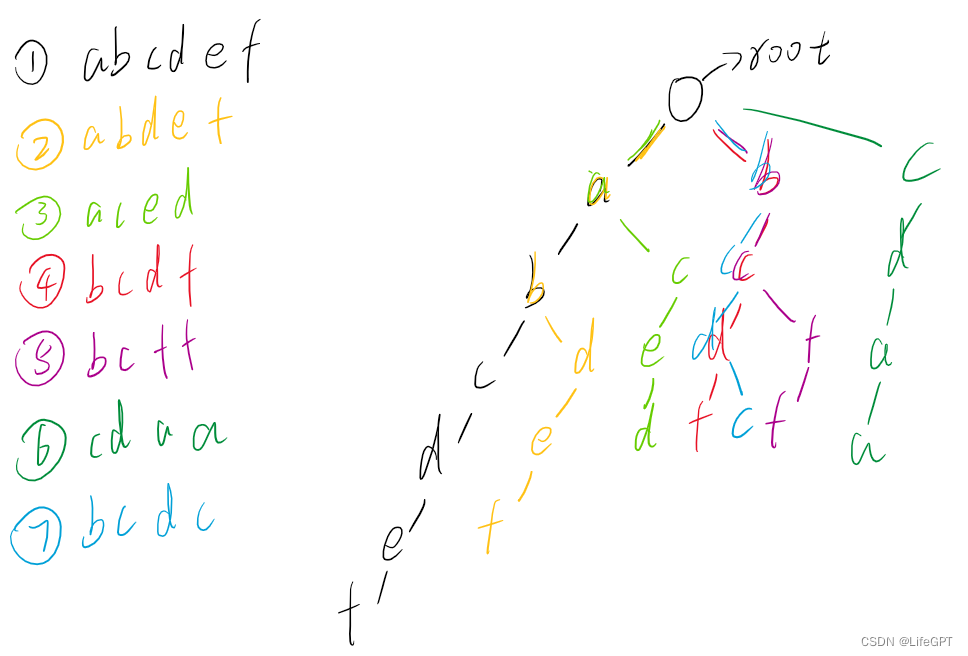 ① abcdef
② abdef
③ aced
④ bcdf
⑤ bcff
⑥ cdaa
⑦ bcdc
root
a b c
b c c d
c d e d d f a
d e d f c f a
e f
f
CSDN @LifeGPT